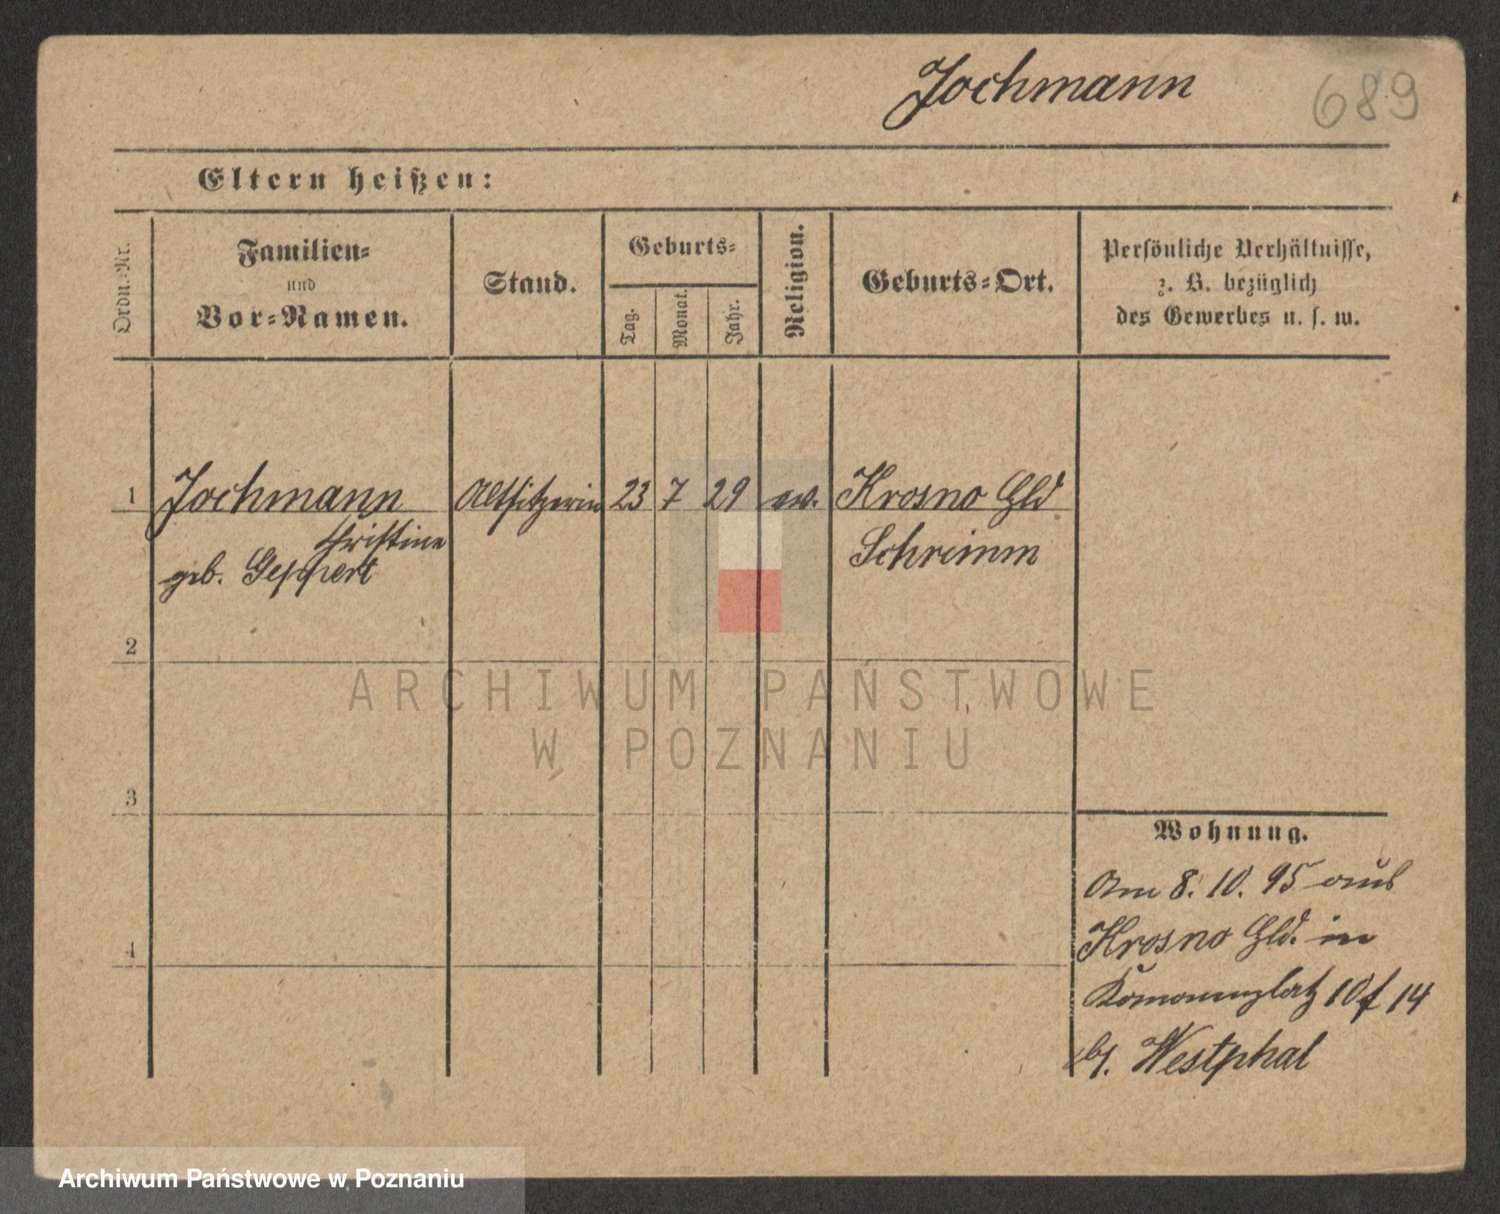 Jochmann 689
Eltern heißen:
Ordn.-Nr.
Familien-
und
Vor-Namen.
Stand.
Geburts-
Tag.
Monat.
Jahr.
Religion.
Geburts-Ort.
Persönliche Verhältnisse,
z. B. bezüglich
des Gewerbes u. s. w.
1 Jochmann Altsitzerin 23 7 29 ev. Krosno Hld
Christine
geb. Geppert
Schrimm
2
3
4
ARCHIWUM PAŃSTWOWE
W POZNANIU
Wohnung.
Am 8. 10. 95 aus
Krosno Hld. in
10f 14
b/. Westphal
Archiwum Państwowe w Poznaniu